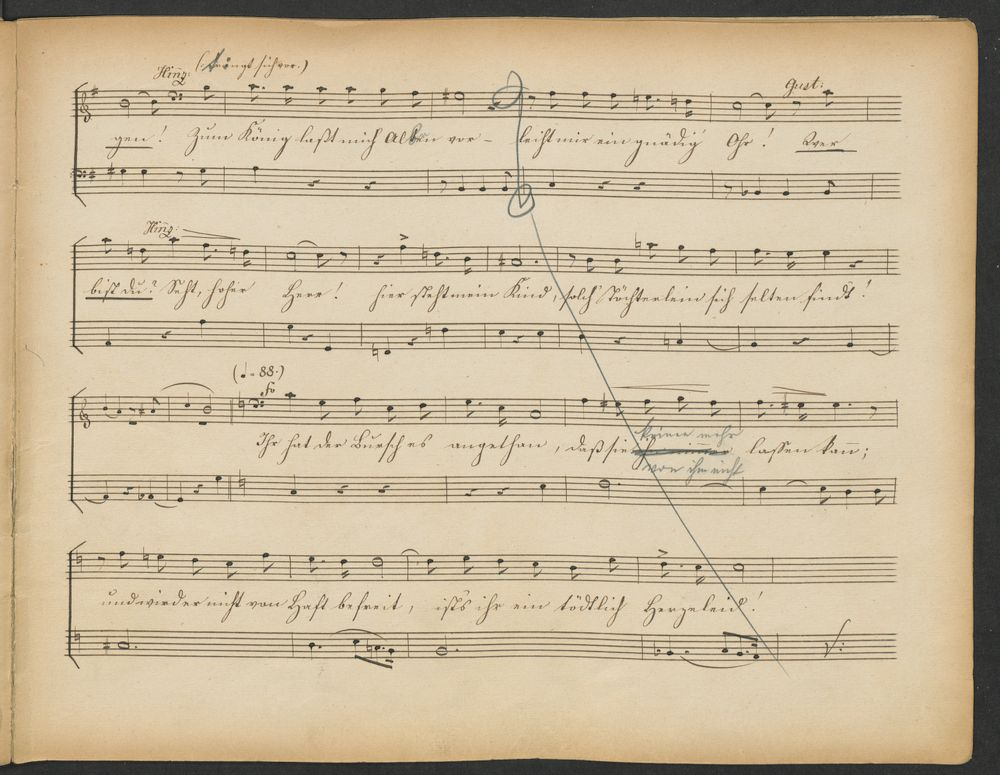 Hinz: (: drängt sich vor.) Gust:
gen! Zum König laßt mich Alten vor – leiht mir ein gnädig Ohr! Wer
Hinz:
bist du? Seht, hoher Herr! hier steht mein Kind, solch' Töchterlein sich selten findt!
(♩ = 88.)
Ihr hat der Bursch es angethan, daß sie keiner mehr lassen kann;
von ihm nicht
und wird er nicht von Haft befreit, ist's ihr ein tödtlich Herzeleid!